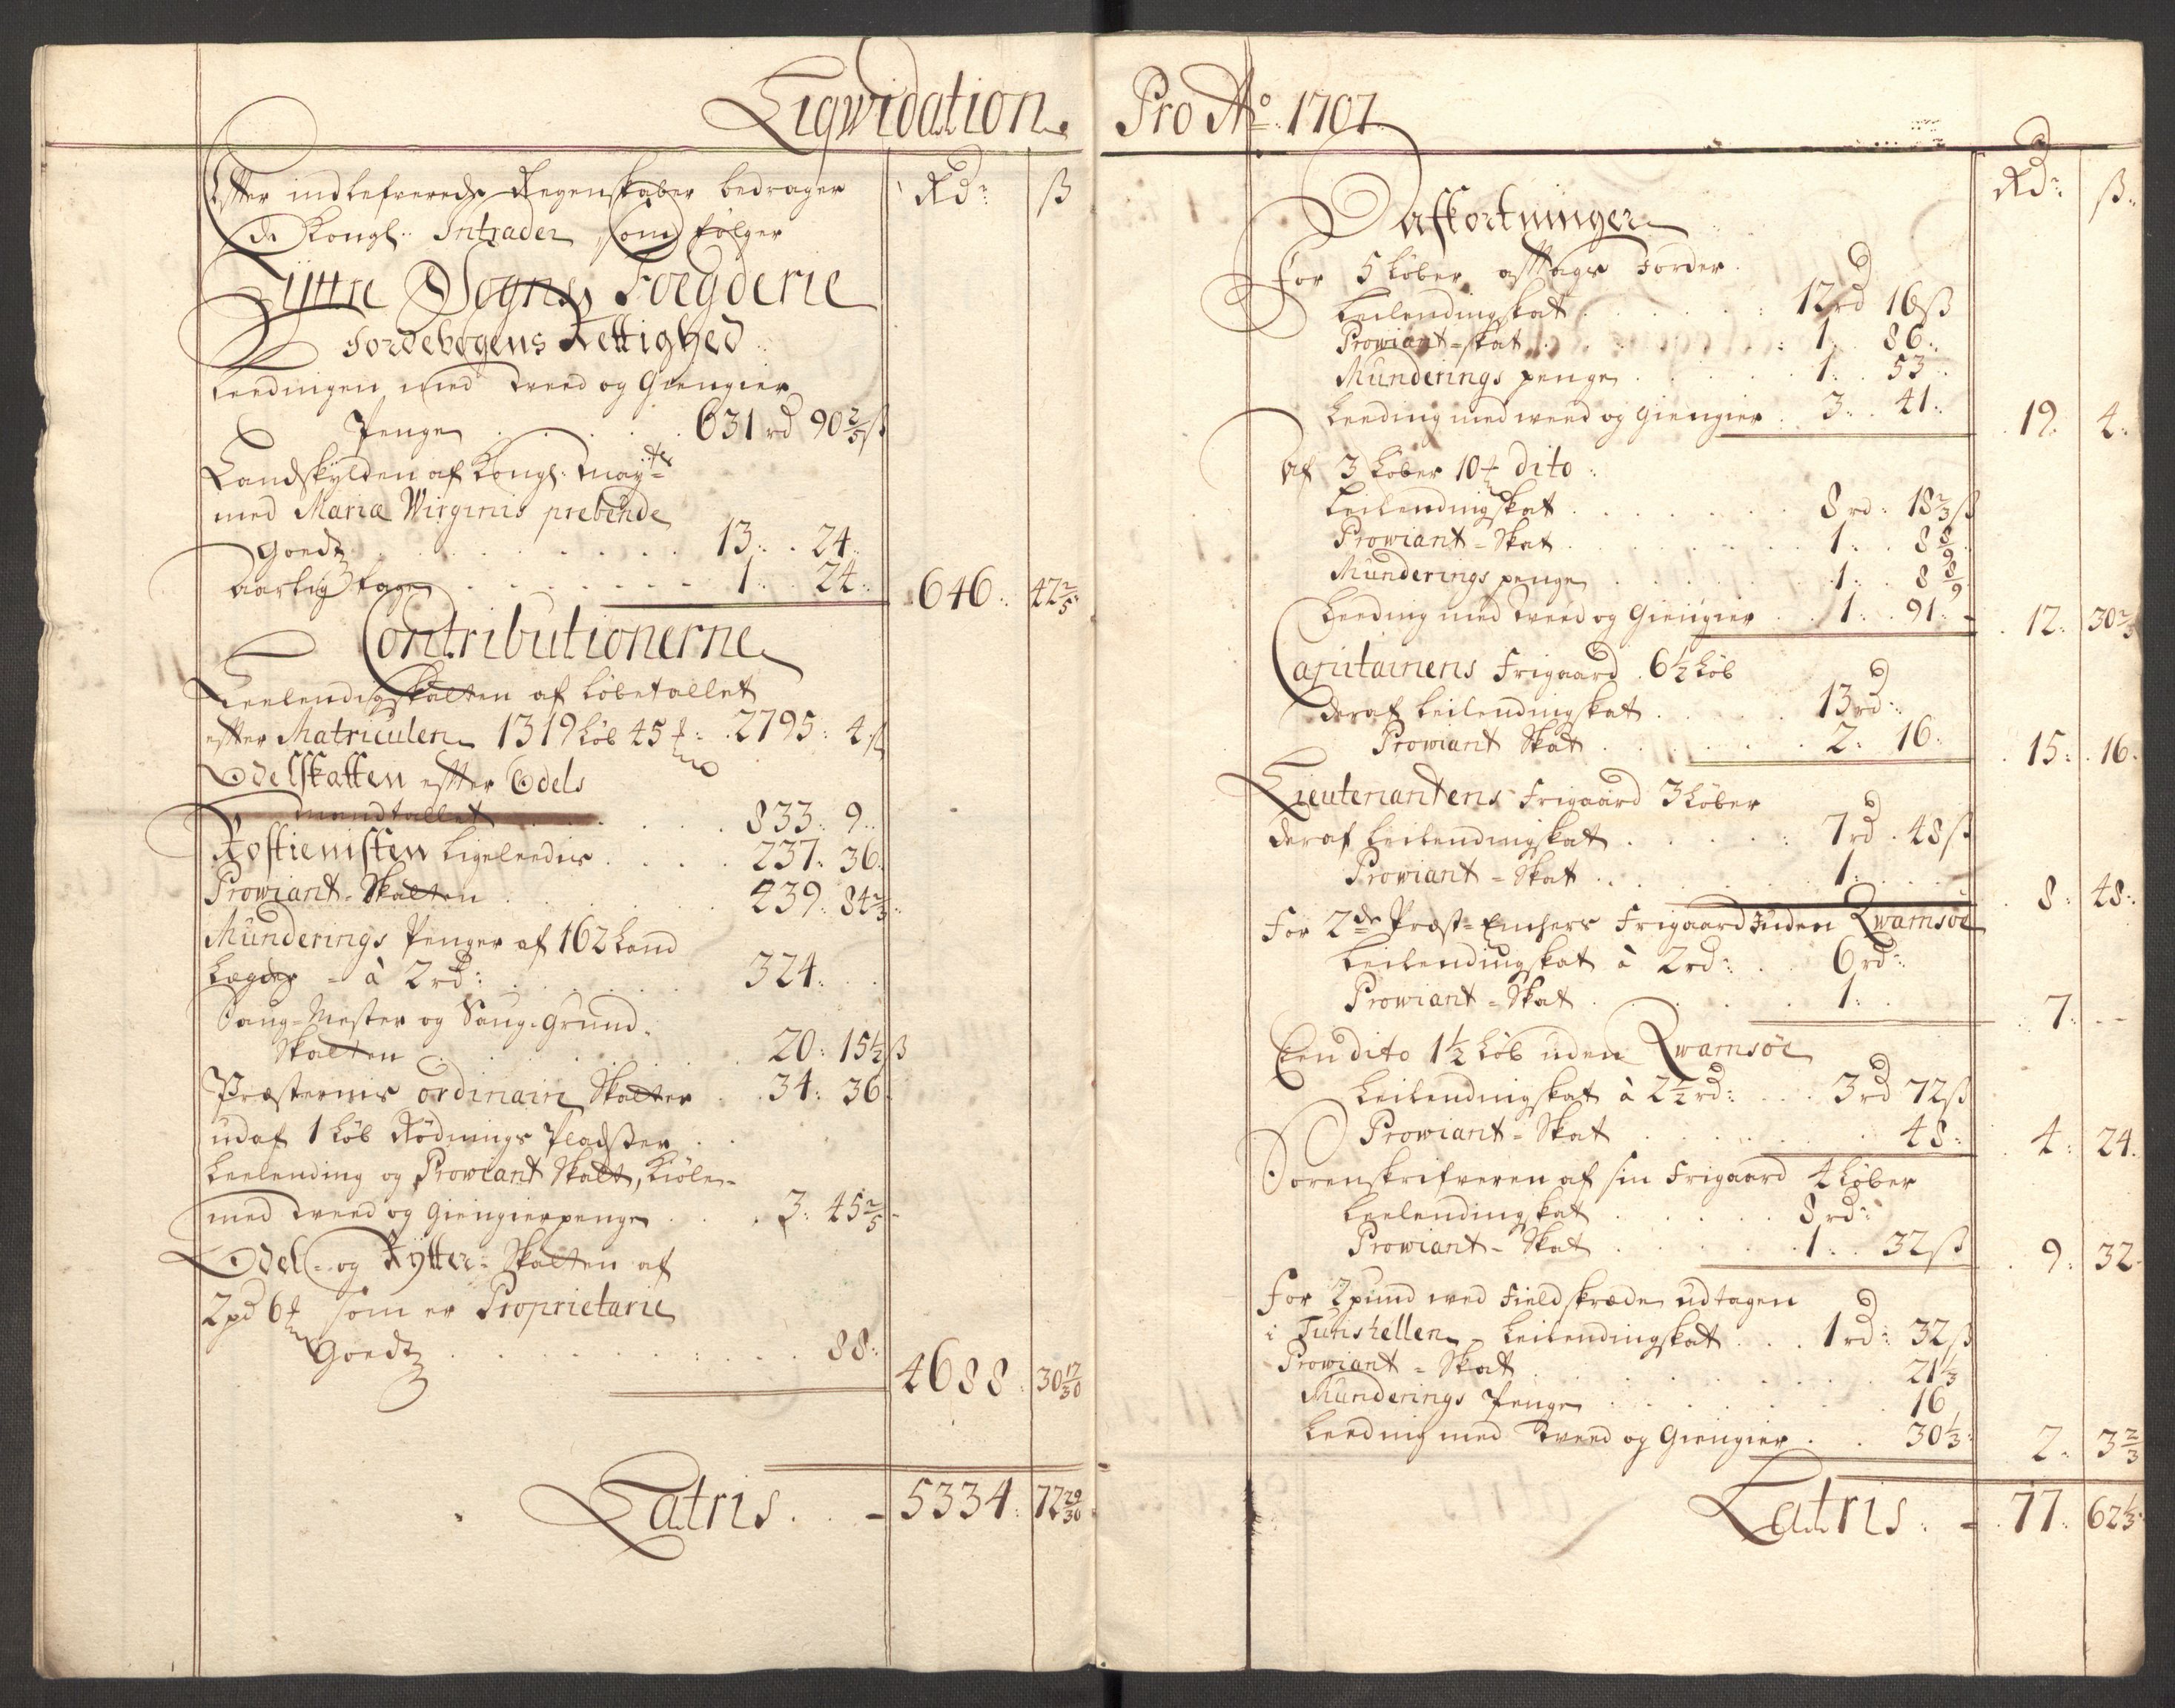 Liqwidation
Efter indlefverede Regenskaber bedrager
de Kongl: Intrader, som følger
Rd: ß
Yttre Sogns Foegderie
Jordebogens Rettighed
Leedingen med Weed og Giengier
Penge . . . 631 rd 90 2/5 ß
Landskylden af Kongl: May:ts
med Mariæ Wirginis prebende
Goedz . . . 13: 24:
Aarlig tage . . . 1: 24: 646: 42 2/5:
Contributionerne
Leelendigskatten af Løbetallet
efter Matriculen 1319 Løb 45 : 2795: 4 ß
Odelskatten efter Odels
mandtallet . . . 833: 9:
Rostienisten ligeleedis . . . 237: 36:
Prowiant-Skatten . . . 439: 84 2/3:
Munderings Penger af 162 Land
Lægder - à 2 rd: . . . 324:
Saug-Mester og Saug-Grund-
Skatten . . . 20: 15 1/2 ß
Præsternis ordinair Skatter . 34: 36:
udaf 1 Løb Rødnings Pladser
Leelending og Prowiant Skatt,
med Weed og Giengierpenge . . . 3: 45 2/5
Odel- og Rytter-Skatten af
2 pd 6 som er Proprietarie
Goedz . . . 88: 4688: 30 17/30
Latris . . - 5334: 72 29/30
Pro Ao: 1707
Rd: ß:
Afkortninger
For 5 Løber aftage Jorder
Leilendingskat . . . 12 rd 16 ß
Prowiant-skat . . . 1: 86:
Munderings penge . . . 1: 53:
Leeding med weed og Giengier . 3: 41: 19: 4:
Af 3 Løber 10 dito:
Leilendingskat . . . 8 rd: 18 2/3 ß
Prowiant-Skat . . . 1: 8 8/9
Munderings penge . . . 1: 8 8/9
Leeding med weed og Giengier . . 1: 91: - 12: 30 2/3
Capitainens Frigaard . 6 1/2 Løb
deraf Leilendingskat . . . 13 rd:
Prowiant Skat . . . 2: 16: 15: 16:
Lieutenantens Frigaard 3 Løber
deraf Leilendingskat . . . 7 rd . 48 ß
Prowiant-Skat . . . 1: 8: 48:
For 2de Præst-Enchers Frigaard Inden Qwamsøe
Leilendingskat à 2 rd: . . 6 rd:
Prowiant-Skat . . . 1: 7: --
Een dito 1 1/2 Løb uden Qwamsøe
Leilendingskat à 2 1/2 rd: . . . 3 rd 72 ß
Prowiant-Skat . . . 48: 4: 24:
Sorenskrifveren af sin Frigaard 4 Løber
Leelendingskat . . . 8 rd:
Prowiant-Skat . . . 1: 32 ß 9: 32:
For 2 pund wed Fieldskræde udtagen
i Leilendingskat . . . 1 rd: 32 ß
Prowiant-Skat . . . 21 1/3
Munderings Penge . . . 16
Leeding med Weed og Giengier . . 30 1/3: 2: 3 2/3
Latris: - 77: 62 1/3: